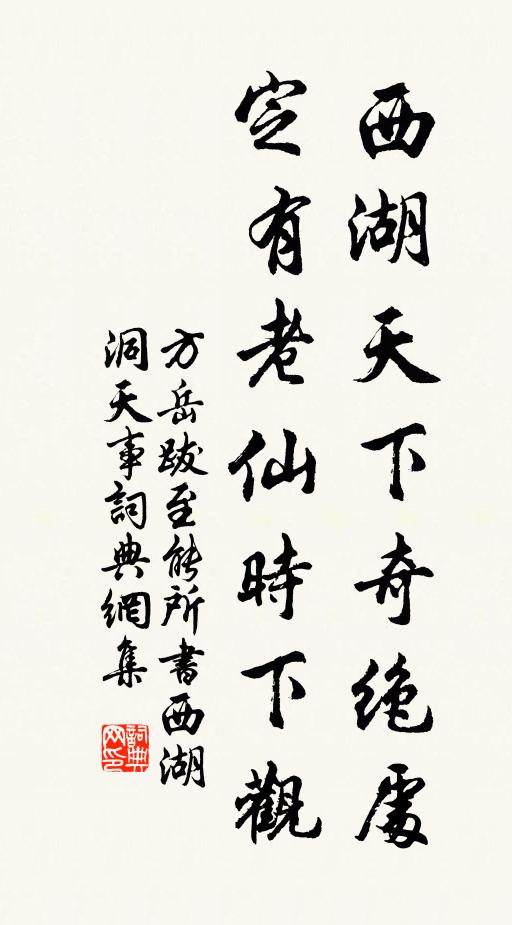 西湖天下奇绝處
定有老仙時下觀
方岳跋至能所書西湖
洞天事詞典網集
詞典网印